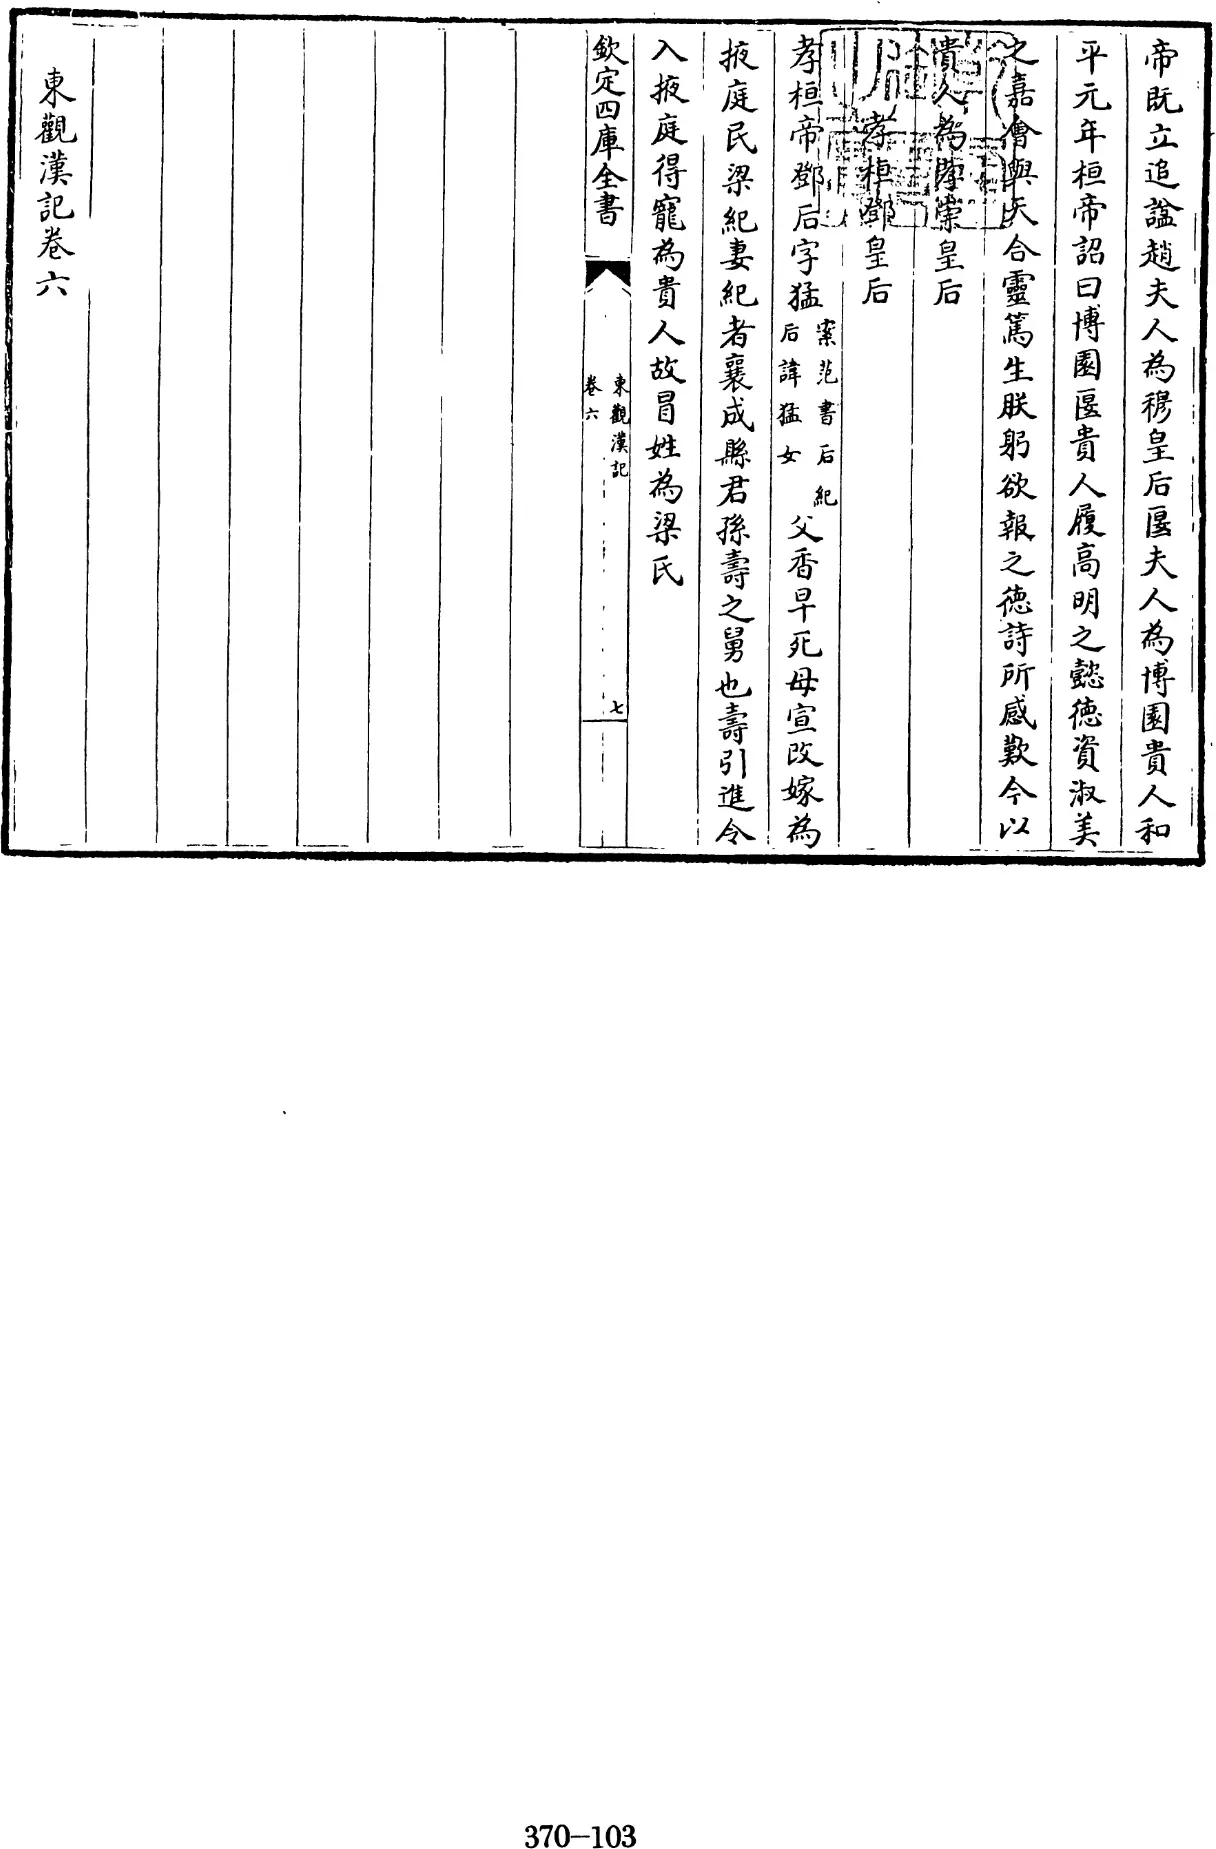 帝既立追諡趙夫人為穆皇后匽夫人為博園貴人和
平元年桓帝詔曰博園匽貴人履高明之懿德資淑美
之嘉會與天合靈篤生朕躬欲報之德詩所感歎今以
貴人為孝崇皇后
孝桓鄧皇后
孝桓帝鄧后字猛案范書后紀后諱猛女父香早死母宣改嫁為
掖庭民梁紀妻紀者襄成縣君孫壽之舅也壽引進令
入掖庭得寵為貴人故冒姓為梁氏
欽定四庫全書
東觀漢記
卷六
七
東觀漢記卷六
370-103